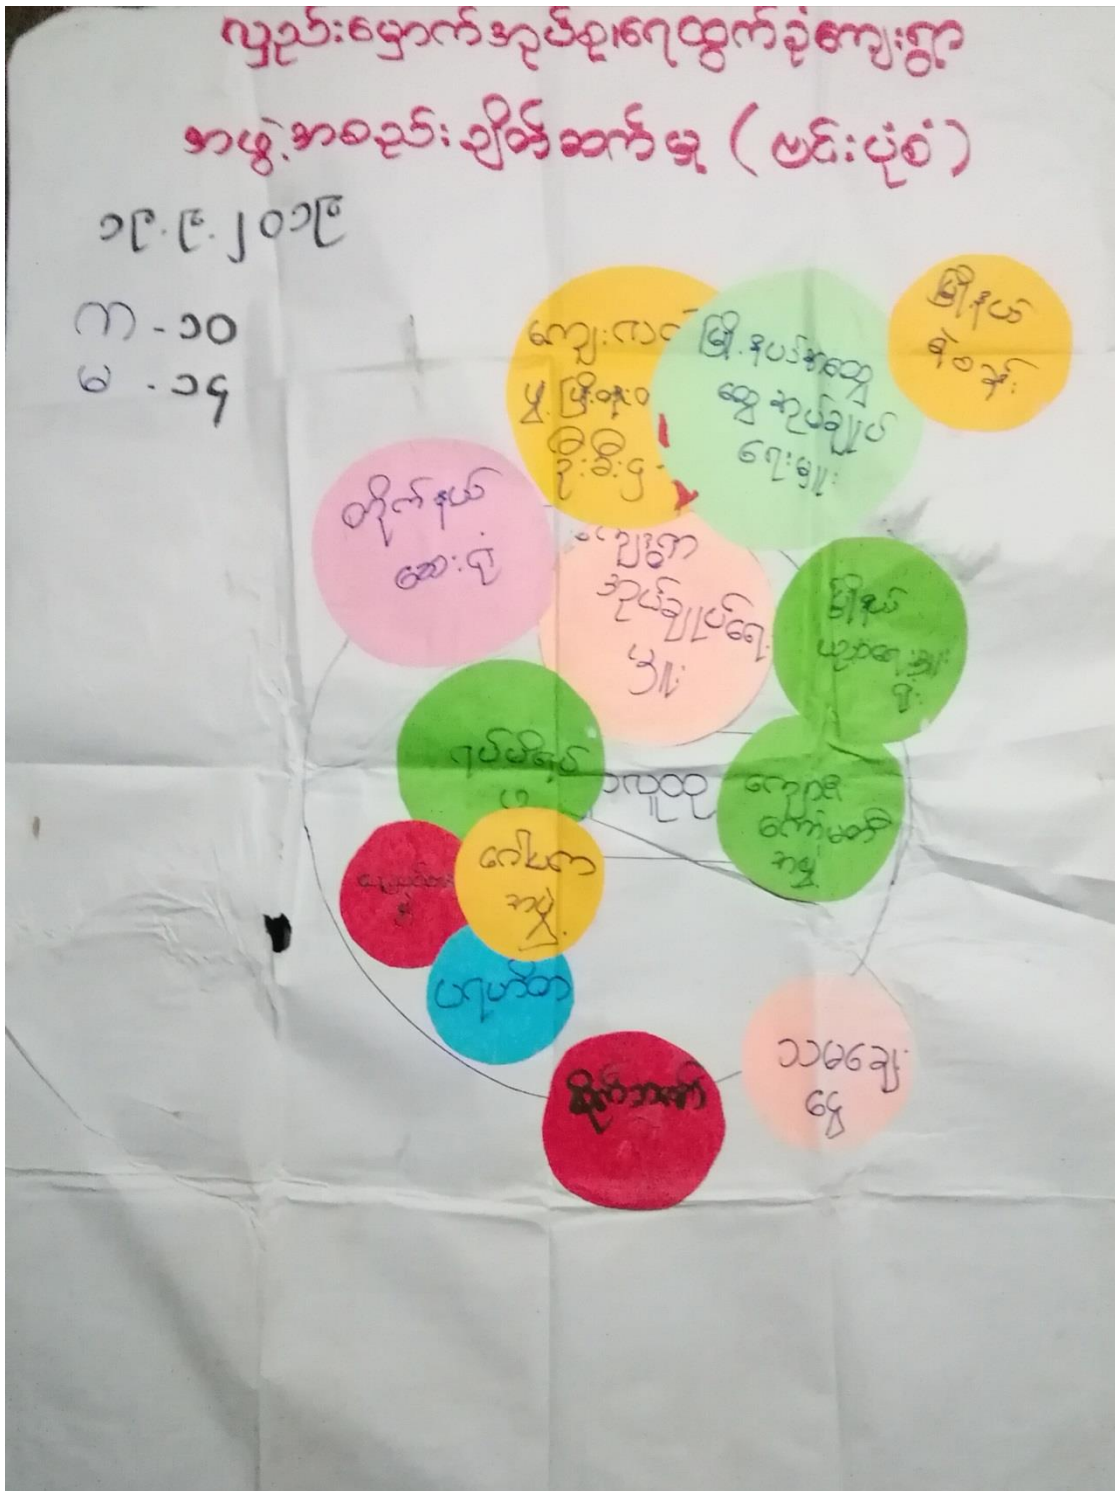 လှည်းမှောက်အုပ်စု၊ရေထွက်ခုံကျေးရွာ
အဖွဲ့အစည်းချိတ်ဆက်မှု (ဗင်းပုံစံ)
၁၉.၉.၂၀၁၉
ကျား - ၁၀
မ - ၁၄
ကျေးလက်
ဖွံ့ဖြိုးတိုး
ဦးစီးဌ
မြို့နယ်အထွေ
ထွေအုပ်ချုပ်
ရေးမှူး
မြို့နယ်
ရဲစခန်း
တိုက်နယ်
ဆေးရုံ
ကျေးရွာ
အုပ်ချုပ်ရေး
မှူး
မြို့နယ်
ပညာရေးမှူး
ရုံး
ရပ်မိရပ်
ဖ
လူထု
ကျောင်း
ကော်မတီ
အဖွဲ့
ဂေါပက
အဖွဲ့
ပရဟိတ
စိုက်ဘဏ်
သမချေး
ငွေ